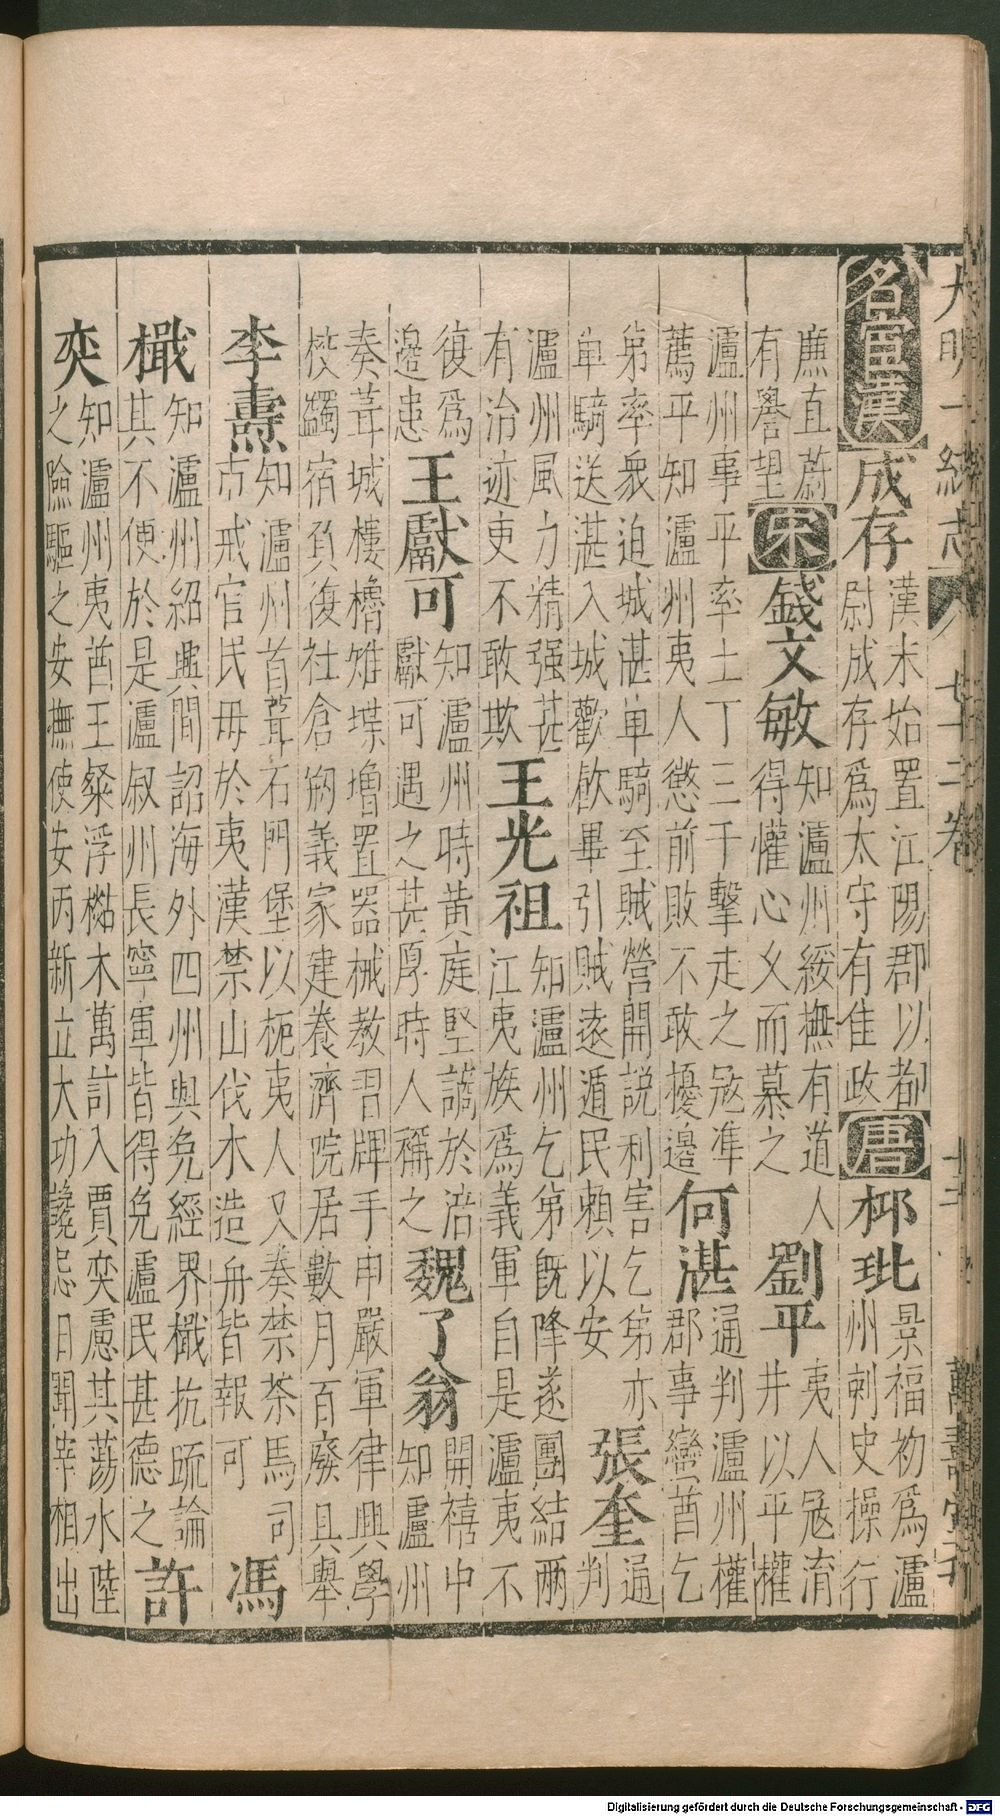 大明一統志 七十二卷 十二 萬壽堂刊
名宦漢 成存 漢末始置江陽郡以都
尉成存為太守有佳政 唐 柳玭 景福初為瀘
州刺史操行
廉直蔚
有譽望 宋 錢文敏 知瀘州綏撫有道人
得懽心久而慕之 劉平 夷人冦淯
井以平權
瀘州事平率土丁三千擊走之冦凖
薦平知瀘州夷人懲前敗不敢擾邉 何湛 通判瀘州權
郡事蠻酋乞
弟率衆迫城湛单騎至賊營開説利害乞弟亦
单騎送湛入城歡飲畢引賊逺遁民賴以安 張奎 通
判
瀘州風力精强甚
有治迹吏不敢欺 王光祖 知瀘州乞弟既降遂團結兩
江夷族為義軍自是瀘夷不
復爲
邉患 王獻可 知瀘州時黄庭堅謫於涪
獻可遇之甚厚時人稱之 魏了翁 開禧中
知瀘州
奏葺城樓櫓雉堞增置器械教習牌手申嚴軍律興學
校蠲宿負復社倉剏義冢建養濟院居數月百廢具舉
李燾 知瀘州首葺石門堡以扼夷人又奏禁茶馬司
市戒官民毋於夷漢禁山伐木造舟皆報可 馮
檝 知瀘州紹興間詔海外四州與免經界檝抗䟽論
其不便於是瀘叙州長寧軍皆得免瀘民甚德之 許
奕 知瀘州夷酋王粲浮㯲木萬計入賈奕慮其蕩水陸
之險驅之安撫使安丙新立大功讒忌日聞宰相出
Digitalisierung gefördert durch die Deutsche Forschungsgemeinschaft - DFG